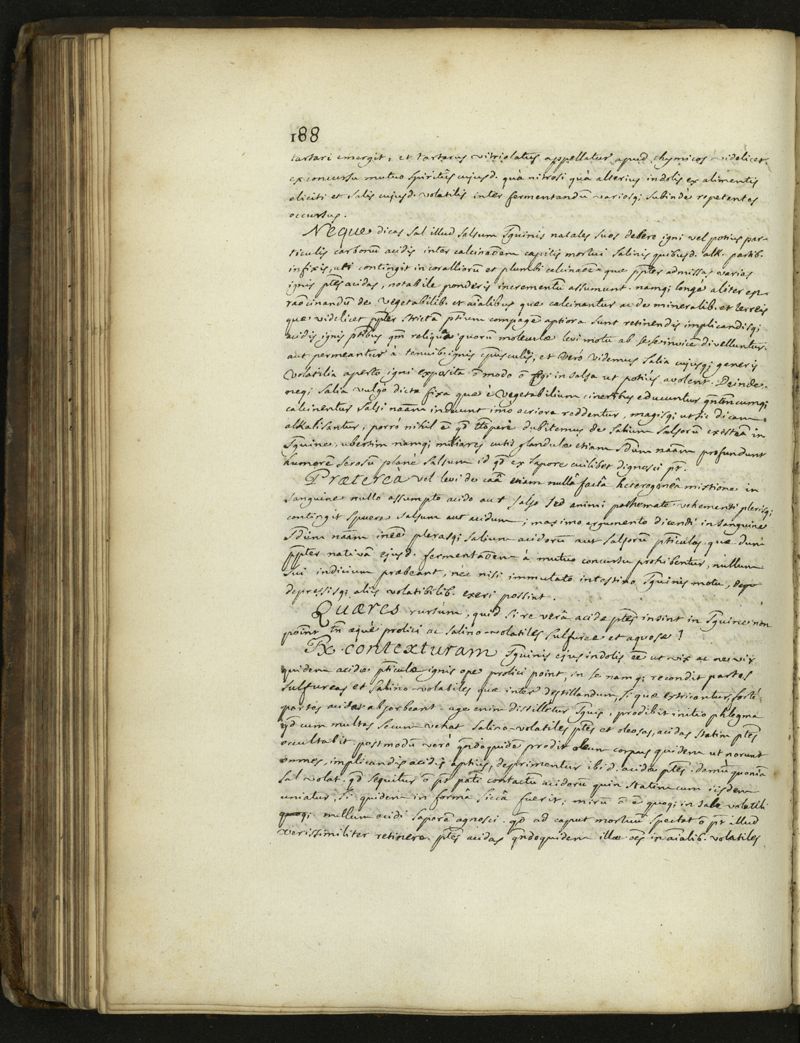 188
tartari emergit, et tartarus vitriolatus appellatur apud chymicos videlicet
ex concursu mutuo spiritus cujusd. quâ nitrosi quâ alterius indolis ex alimentis
eliciti et salis cujusd. volatilis inter fermentandũ variosq; subindè repetentes
occursus.
Neque dicas sal illud salsum sguinis natales suos debere igni vel potius par-
ticulis carbonũ acidis inter calcinãoem capitis mortui salinis quibusd. alk. partib.
infixis, uti contingit in coralliorũ et plumbi calcinaõe quæ ppter admissas varias
ignis ptes acidas, notabile ponderis incrementũ assumunt. namq; longè aliter
raõcinandũ de vegetabilib. et aĩalibus quæ calcinantur ac de mineralib. et terreis
quæ videlicet ppter strictã ptium compagẽ aptiora sunt retinendis implicandisq;
acidis ignis ptibus qm̃ reliqua quorũ moleculæ levi motu ab se se invicẽ divelluntur
aut permeantur à tenuib. ignis cpusculis, et verò videmus salia cujusq; generis
volatilia aperto igni exposita õ modo õ figi in salsa ut potius avolent. Deinde
neq; salia vulgò dicta fixa quæ è vegetabilium cineribus educuntur
calcinentur salsi naãm induunt imo acriora redduntur, magisq; ut sic dicam
alkalisantur; porrò nihil ẽ qd dubitemus de salium salsorũ in
sguine, ubertim namq; miliares cutis glandulæ etiam sdum naãm profundunt
humorẽ serosũ planè salsum id qd ex sapore cuilibet dignosci pt.
Prætereà vel levi de caâ etiam nullâ factâ heterogeneâ mistione in
sanguine nullo assumpto acido aut salso sed animi pathemate vehementi plerisq;
contingit spuere salsum aut acidum; maximo argumento dicendi in sanguine
sdum naãm inẽe plerasq; salium acidorũ aut salsorũ pticulas quæ dum
ppter nativã ejusd. fermentaõem à mutuo concursu prohibentur, nullum
sui indicium præbeant, nec nisi immutato intestino sguinis motu,
depressisq; aliis volatibilib. exeri possint.
Quæres rursum, quid si re verâ acidæ ptes insint in sguine non
point tñ æquè prolici ac salino-volatiles sulfureæ et aquosæ?
Rx. contexturam sguinis ejus indolis ẽe ut vix ac ne vix
quidem acidæ pticulæ ignis ope prolici point, in se namq; recondit partes
sulfureas et salino-volatiles quæ inter destillandum, si quæ extricantur fortè
partes acidas absorbent. age enim distilletur sguis, prodibit initio phlegma
qd cum multas secum vehat salino-volatiles ptes et oleosas, acidas statim ptes
occultabit. postmodũ verò qndoquidẽ prodit oleum corpus quidem ut norunt
omnes, implicandis acidis aptius, deprimentur ibid. acidæ ptes. damũ quoniã
sal volat. qd sequitur õ pt pati contactũ acidorũ quin statim cum iisdem
uniatur, si quidem in formâ siccâ fuerit; mirũ õ ẽ quoq; in sale volatili
quoq; nullum acidi saporẽ agnosci. qd ad caput mortuũ spectat õ pt illud
verissimiliter retinere ptes acidas qndoquidem illæ oẽs in aĩalib. volatiles